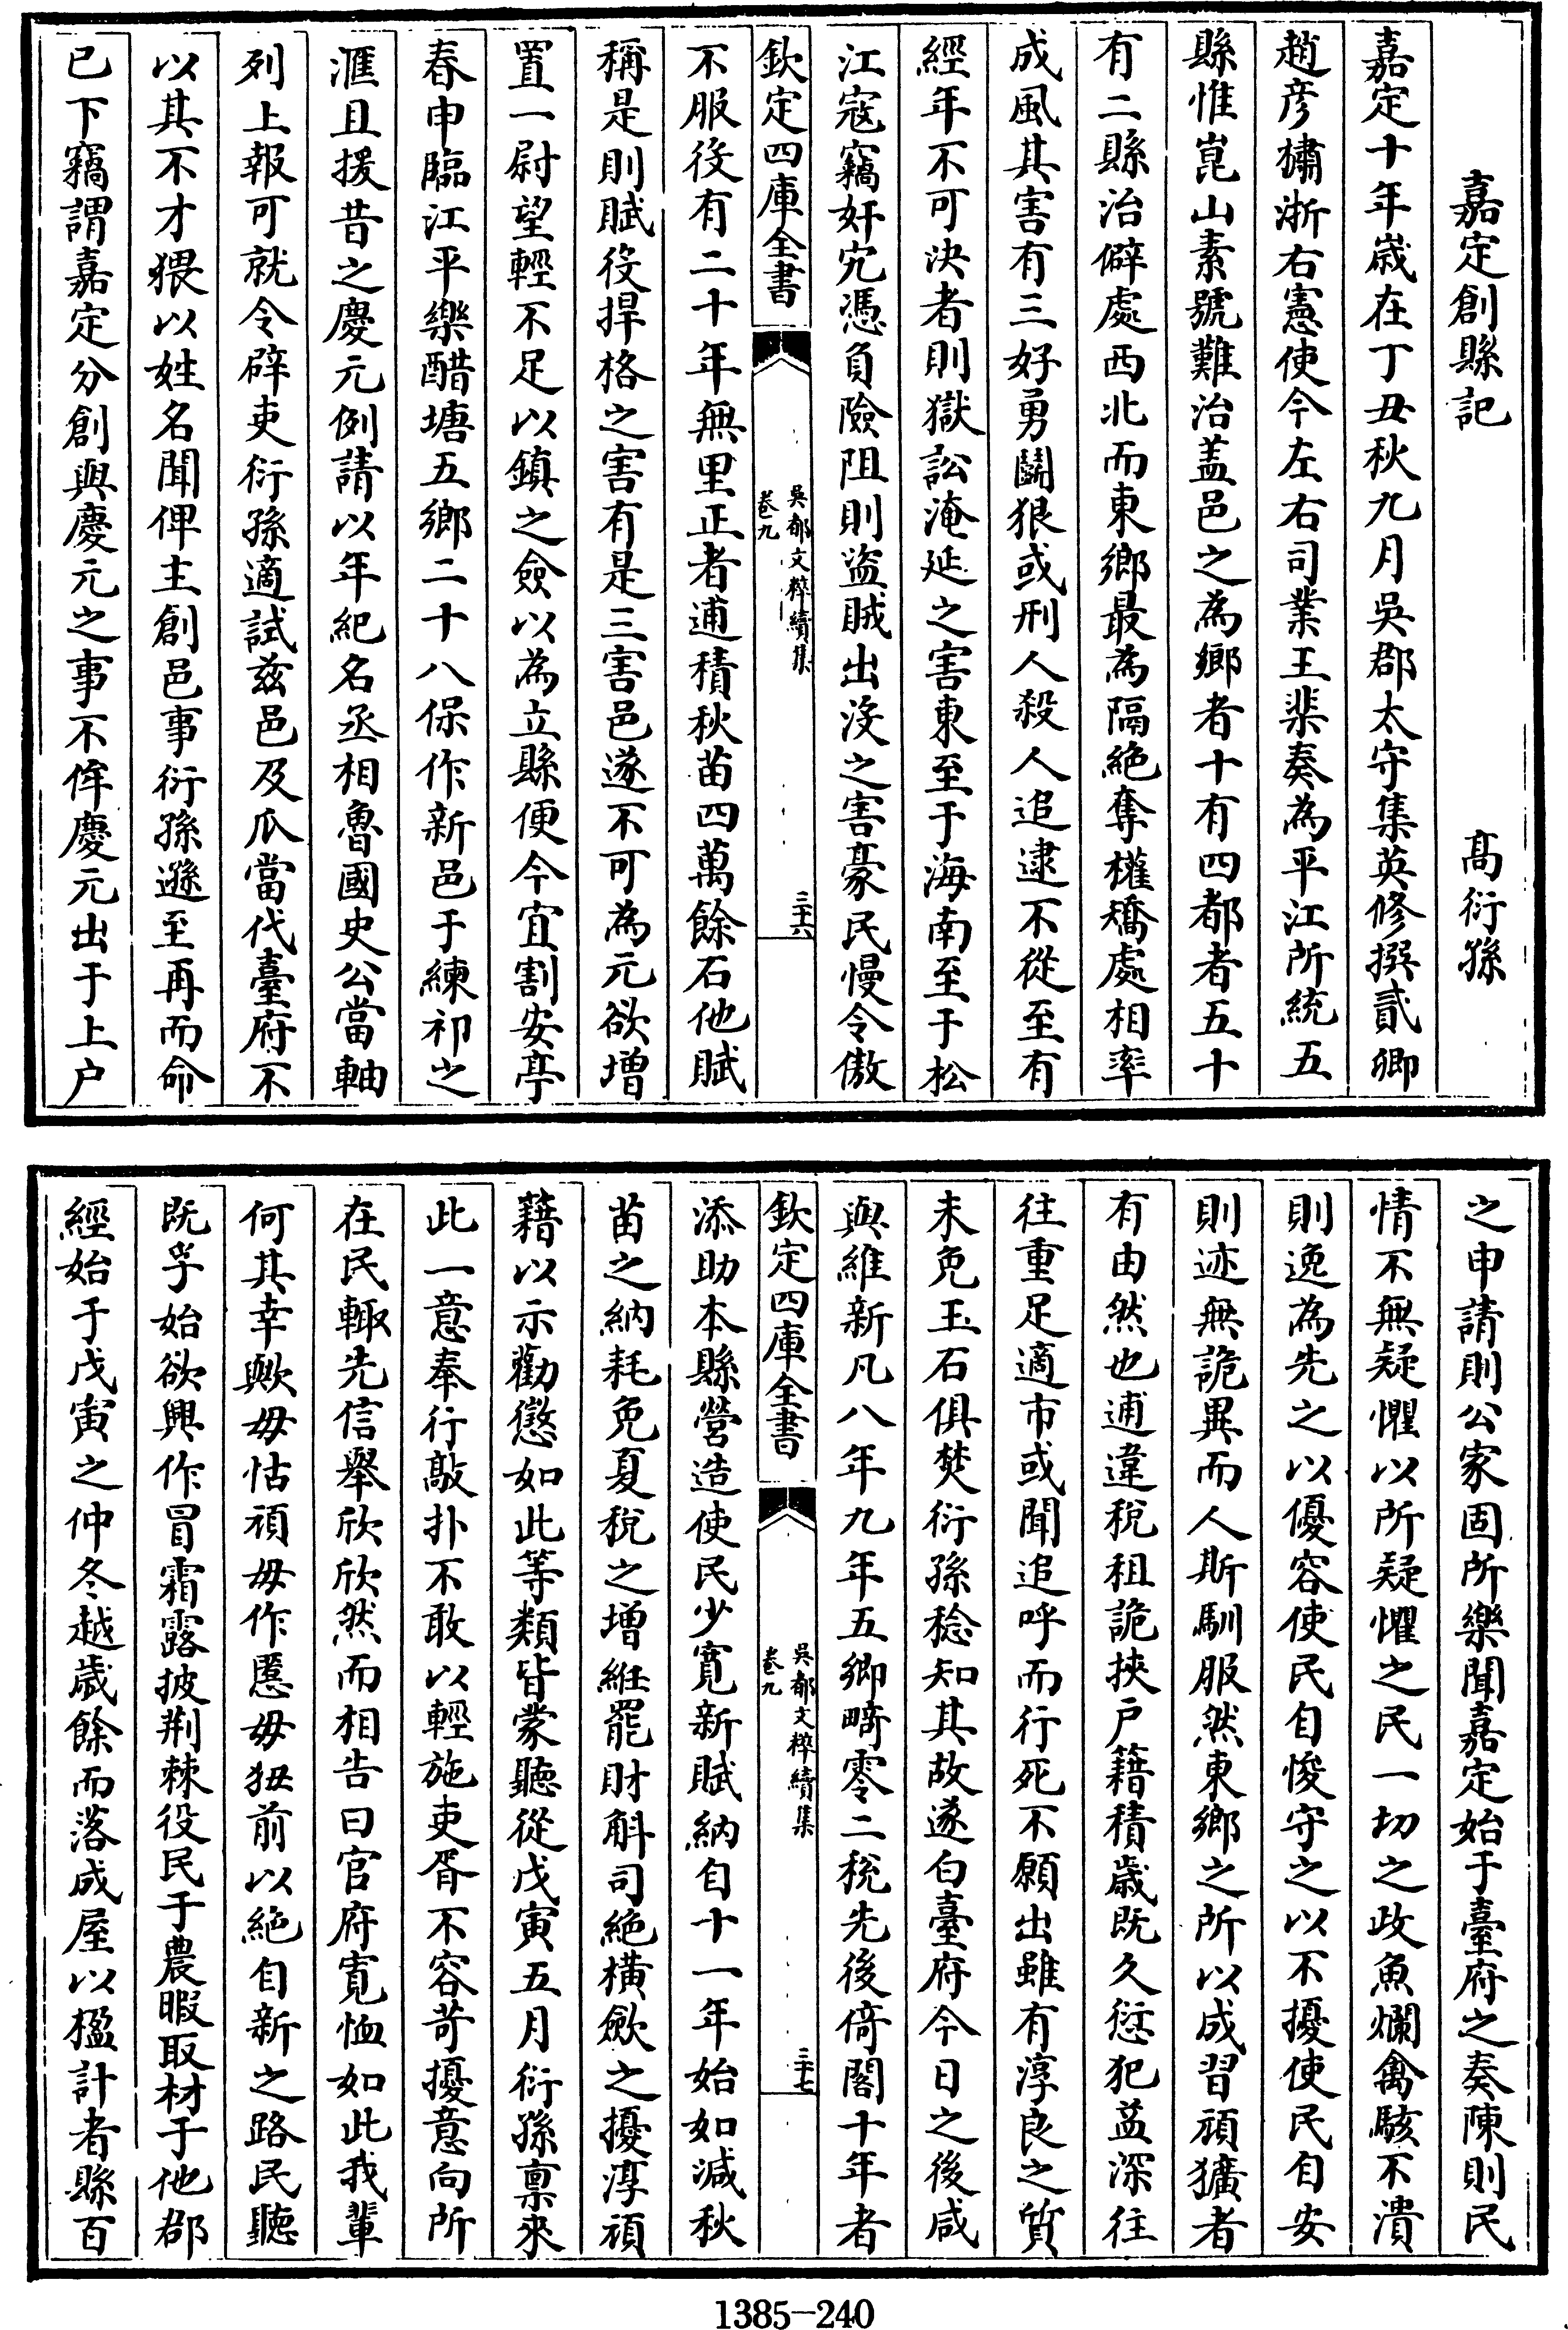 嘉定創縣記　高衍孫
嘉定十年歲在丁丑秋九月吳郡太守集英修撰貳卿
趙彦橚浙右憲使今左右司業王棐奏為平江所統五
縣惟崑山素號難治盖邑之為鄉者十有四都者五十
有二縣治僻處西北而東鄉最為隔絶奪權矯處相率
成風其害有三好勇鬭狠或刑人殺人追逮不從至有
經年不可決者則獄訟淹延之害東至于海南至于松
江寇竊奸宄憑負險阻則盜賊出没之害豪民慢令傲
欽定四庫全書
吳都文粹續集
卷九
三十六
不服役有二十年無里正者逋積秋苗四萬餘石他賦
稱是則賦役捍格之害有是三害邑遂不可為元欲増
置一尉望輕不足以鎮之僉以為立縣便今宜割安亭
春申臨江平樂醋塘五鄉二十八保作新邑于練祁之
滙且援昔之慶元例請以年紀名丞相魯國史公當軸
列上報可就令辟吏衍孫適試兹邑及瓜當代臺府不
以其不才猥以姓名聞俾主創邑事衍孫遜至再而命
已下竊謂嘉定分創與慶元之事不侔慶元出于上户
之申請則公家固所樂聞嘉定始于臺府之奏陳則民
情不無疑懼以所疑懼之民一切之政魚爛禽駭不潰
則逸為先之以優容使民自悛守之以不擾使民自安
則迹無詭異而人斯馴服然東鄉之所以成習頑獷者
有由然也逋違税租詭挾户籍積歲既久愆犯益深往
往重足適市或聞追呼而行死不願出雖有淳良之質
未免玉石俱焚衍孫稔知其故遂白臺府今日之後咸
與維新凡八年九年五鄉畸零二税先後倚閣十年者
欽定四庫全書
吳都文粹續集
卷九
三十七
添助本縣營造使民少寛新賦納自十一年始如減秋
苗之納耗免夏税之増絍罷財斛司絶橫歛之擾淳頑
藉以示勸懲如此等類皆蒙聽從戊寅五月衍孫禀來
此一意奉行敲扑不敢以輕施吏胥不容苛擾意向所
在民輙先信舉欣欣然而相告曰官府寛恤如此我輩
何其幸歟毋怙頑毋作慝毋狃前以絶自新之路民聽
既孚始欲興作冒霜露披荆棘役民于農暇取材于他郡
經始于戊寅之仲冬越歲餘而落成屋以楹計者縣百
1385—240